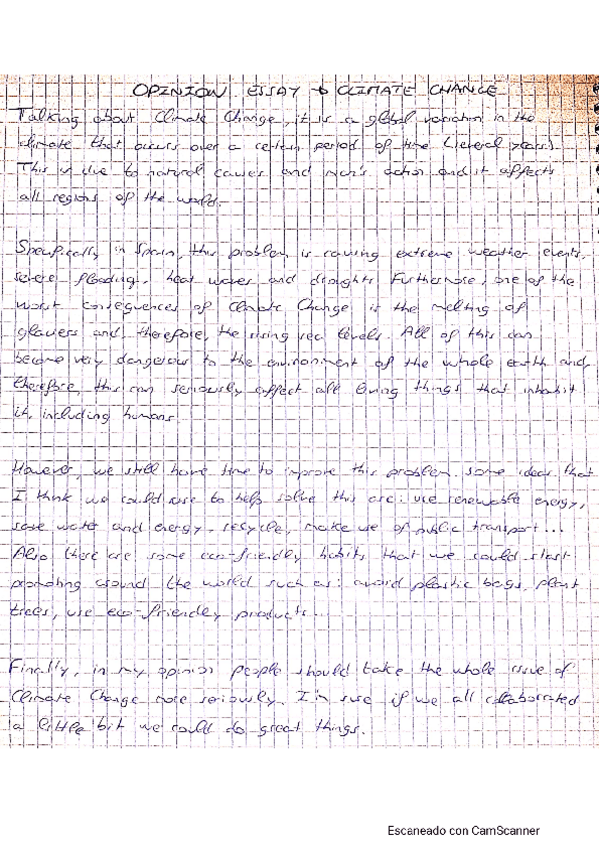 OPINION ESSAY → CLIMATE CHANGE
Talking about Climate Change, it is a global variation in the
climate that occurs over a certain period of time (several years).
This is due to natural causes and men's action and it affects
all regions of the world.
Specifically in Spain, this problem is causing extreme weather events,
severe flooding, heat waves and droughts. Furthermore, one of the
worst consequences of Climate Change is the melting of
glaciers and, therefore, the rising sea levels. All of this can
become very dangerous to the environment of the whole earth and,
therefore, this can seriously affect all living things that inhabit
it, including humans.
However, we still have time to improve this problem. some ideas that
I think we could use to help solve this are: use renewable energy,
save water and energy, recycle, make use of public transport...
Also there are some eco-friendly habits that we could start
promoting around the world such as: avoid plastic bags, plant
trees, use eco-friendly products...
Finally, in my opinion people should take the whole issue of
Climate Change more seriously. I'm sure if we all collaborated
a little bit we could do great things.
Escaneado con CamScanner